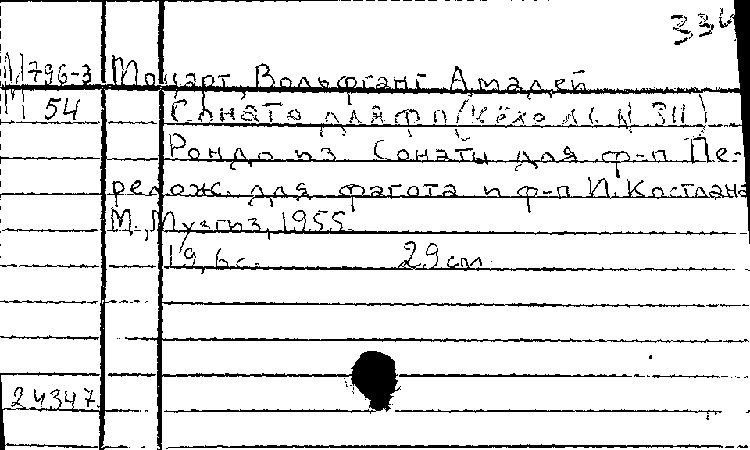 334
М796-3 Моцарт, Вольфганг Амадей
М 54 Соната для ф п (Кёхель N 311)
Рондо из Сонаты для ф-п Пе-
релож. для фагота и ф-п И. Костлана
М., Музгиз, 1955.
19, 6 с. 29 см
24347